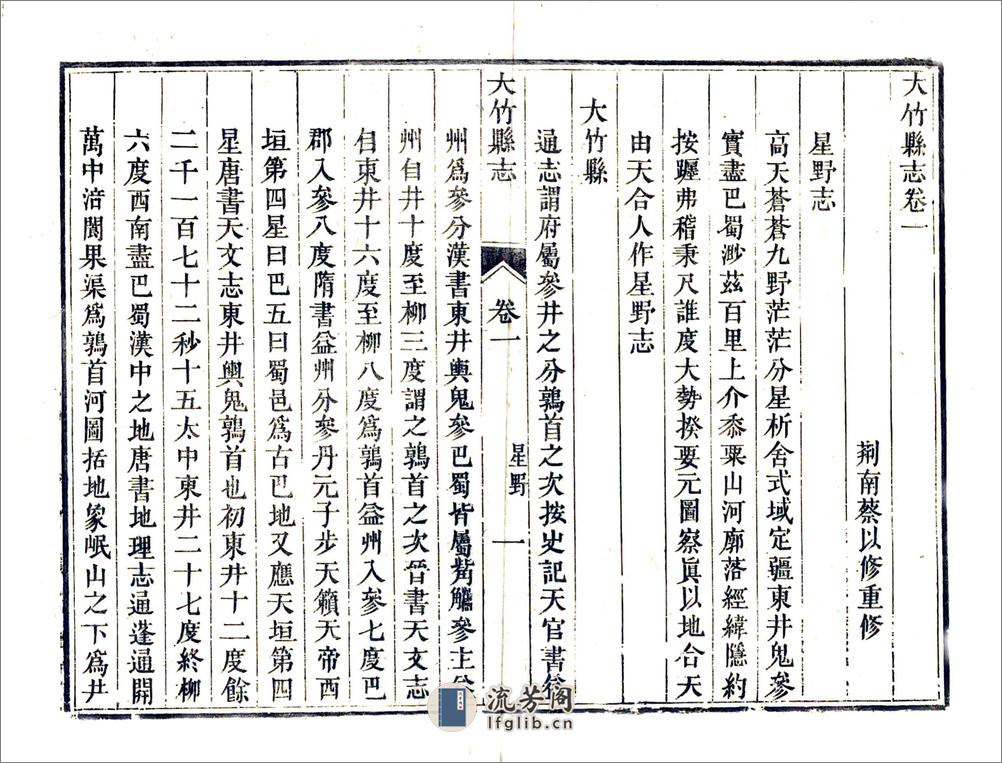 大竹縣志卷一
荆南蔡以修重修
星野志
高天蒼蒼九野茫茫分星析舍式域定疆東井鬼參
實盡巴蜀渺茲百里上介黍粟山河廓落經緯隱約
按躔弗稽秉尺誰度大勢揆要元圖察眞以地合天
由天合人作星野志
大竹縣
通志謂府屬參井之分鶉首之次按史記天官書益
大竹縣志
卷一
星野
一
州爲參分漢書東井輿鬼參巴蜀皆屬觜觿參主益
州自井十度至柳三度謂之鶉首之次晉書天文志
自東井十六度至柳八度爲鶉首益州入參七度巴
郡入參八度隋書益州分參丹元子步天籟天帝西
垣第四星曰巴五曰蜀邑爲古巴地又應天垣第四
星唐書天文志東井輿鬼鶉首也初東井十二度餘
二千一百七十二秒十五太中東井二十七度終柳
六度西南盡巴蜀漢中之地唐書地理志通蓬通開
萬中涪閬果渠爲鶉首河圖括地象岷山之下爲井
流芳阁
lfglib.cn